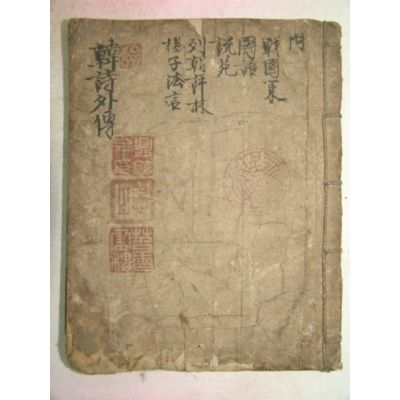 附
戰國策
國語
說苑
列朝評林
揚子法言
韓詩外傳